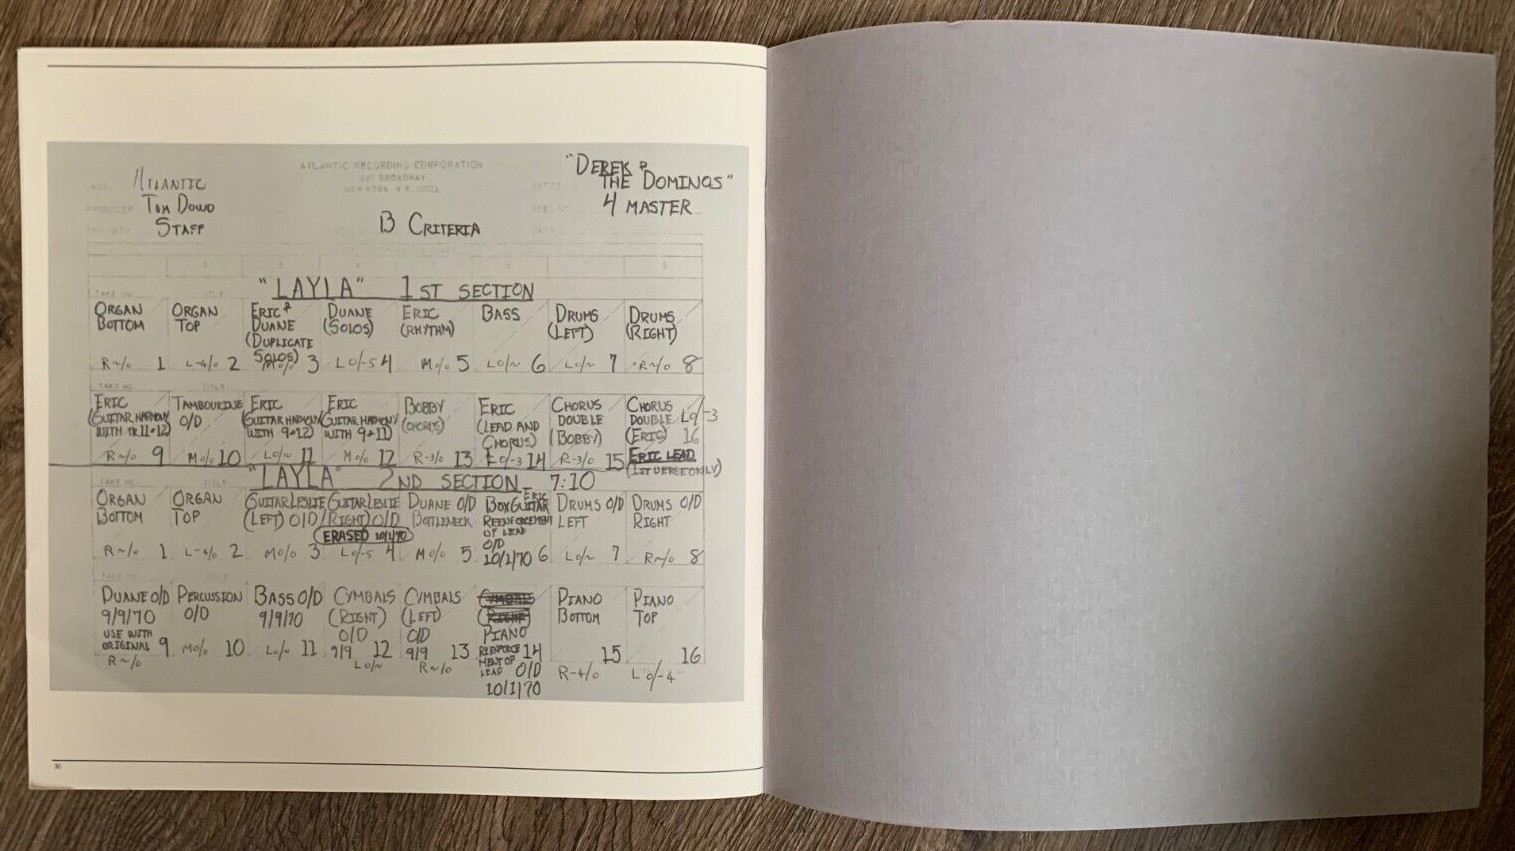 ATLANTIC RECORDING CORPORATION
BROADWAY
ATLANTIC
TOM DOWD
STAFF
B CRITERIA
"DEREK &
THE DOMINOS"
4 MASTER
"LAYLA" 1ST SECTION
ORGAN BOTTOM R~/o 1
ORGAN TOP L-4/o 2
ERIC & DUANE (DUPLICATE SOLOS) M%o 3
DUANE (SOLOS) L0/-5 4
ERIC (RHYTHM) M%o 5
BASS L0/~ 6
DRUMS (LEFT) L0/~ 7
DRUMS (RIGHT) R~/o 8
TAKE NO. TITLE
ERIC (GUITAR HARMONY WITH TR 11+12) R~/o 9
TAMBOURINE O/D M%o 10
ERIC (GUITAR HARMONY WITH 9+12) L0/~ 11
ERIC (GUITAR HARMONY WITH 9+11) M%o 12
BOBBY (CHORUS) R-3/o 13
ERIC (LEAD AND CHORUS) L0/-3 14
CHORUS DOUBLE (BOBBY) R-3/o 15
CHORUS DOUBLE (ERIC) L0/-3 16
ERIC LEAD
(1ST VERSE ONLY)
"LAYLA" 2ND SECTION 7:10
ORGAN BOTTOM R~/o 1
ORGAN TOP L-4/o 2
GUITAR LESLIE (LEFT) O/D M%o 3
GUITAR LESLIE (RIGHT) O/D L0/-5 4
ERASED 10/1/70
DUANE O/D BOTTLENECK M%o 5
ERIC GUITAR REENFORCEMENT OF LEAD O/D 10/1/70 6
DRUMS O/D LEFT L0/~ 7
DRUMS O/D RIGHT R~/o 8
DUANE O/D 9/9/70 USE WITH ORIGINAL 9 R~/o
PERCUSSION O/D M%o 10
BASS O/D 9/9/70 L0/~ 11
CYMBALS (RIGHT) O/D 9/9 12 L0/~
CYMBALS (LEFT) O/D 9/9 13 R~/o
CYMBALS (RIGHT) PIANO REENFORCEMENT OF LEAD 14 O/D 10/1/70
PIANO BOTTOM 15 R-4/o
PIANO TOP 16 L0/-4